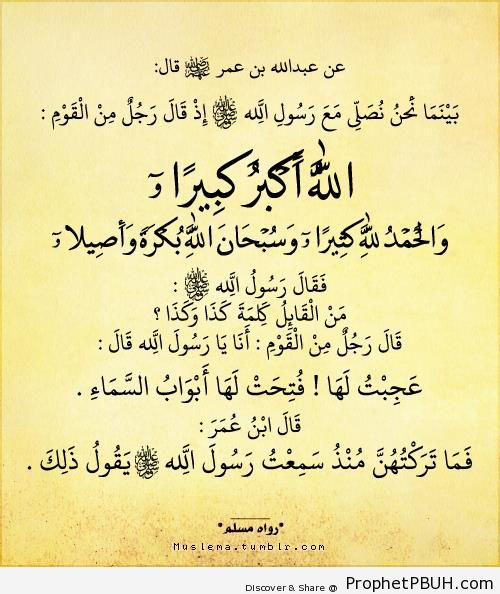 عن عبدالله بن عمر ﷁ قال:
بَيْنَمَا نَحْنُ نُصَلِّي مَعَ رَسُولِ اللَّه ﷺ إِذْ قَالَ رَجُلٌ مِنْ الْقَوْمِ :
اللَّهُ أَكْبَرُ كَبِيرًا وَ
وَالْحَمْدُ لِلَّهِ كَثِيرًا وَ وَسُبْحَانَ اللَّهِ بُكْرَةً وَأَصِيلا وَ
فَقَالَ رَسُولُ اللَّه ﷺ :
مَنْ الْقَائِلُ كَلِمَةَ كَذَا وَكَذَا ؟
قَالَ رَجُلٌ مِنْ الْقَوْمِ : أَنَا يَا رَسُولَ اللَّه قَالَ :
عَجِبْتُ لَهَا ! فُتِحَتْ لَهَا أَبْوَابُ السَّمَاءِ .
قَالَ ابْنُ عُمَرَ :
فَمَا تَرَكْتُهُنَّ مُنْذُ سَمِعْتُ رَسُولَ اللَّه ﷺ يَقُولُ ذَلِكَ .
*رواه مسلم*
Muslema.tumblr.com
Discover & Share @ ProphetPBUH.com